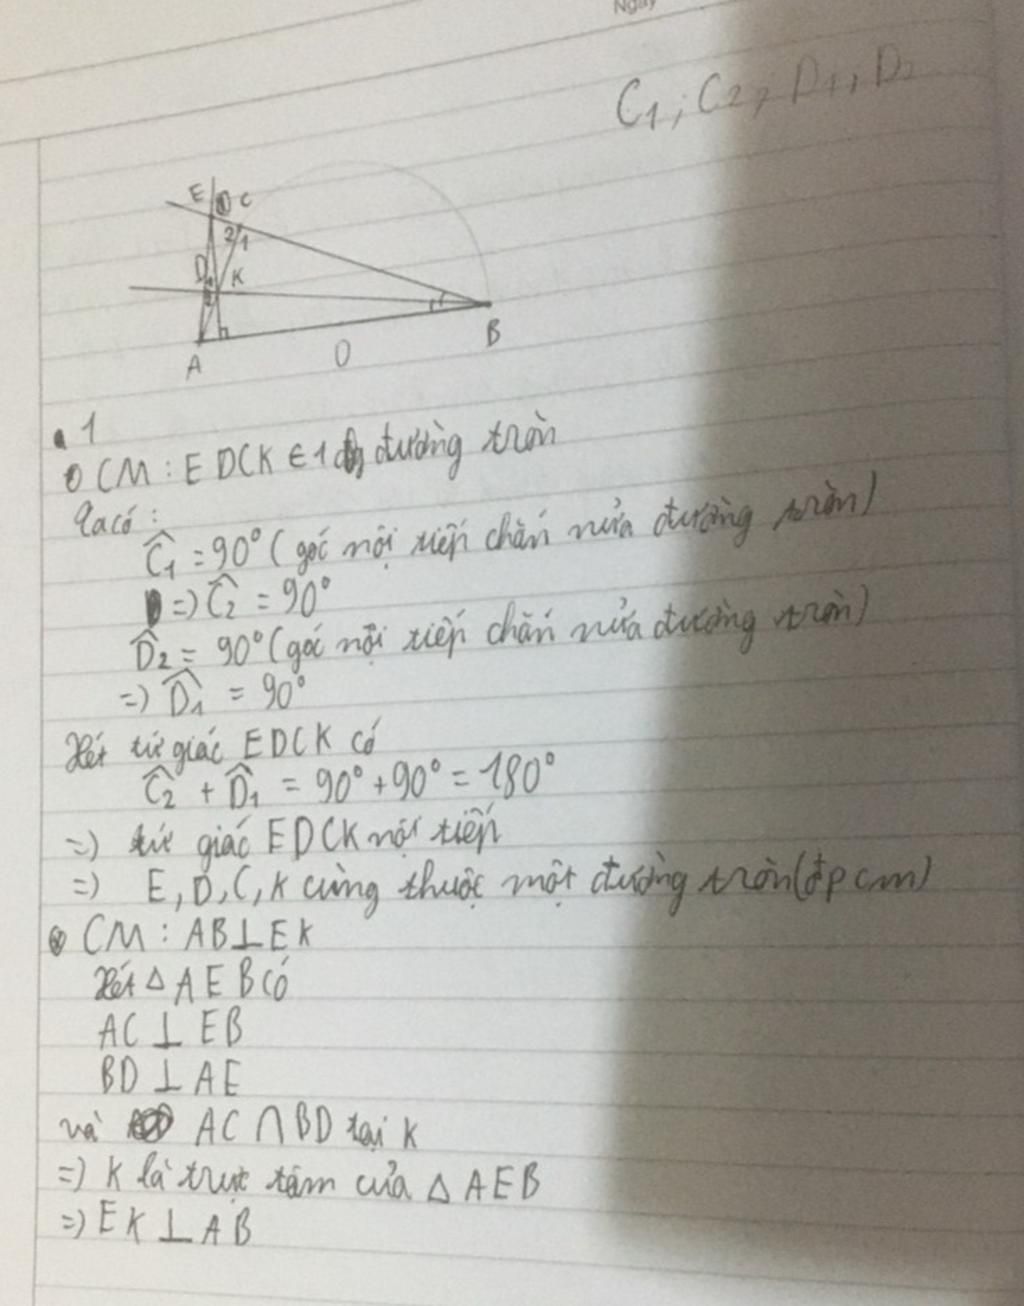 Ngày
C1; C2; D1, D2
E C
2 1
D K
A O B
1
CM: EDCK ∈ 1 đường tròn
Ta có:
Ĉ1 = 90° (góc nội tiếp chắn nửa đường tròn)
=> Ĉ2 = 90°
D̂2 = 90° (góc nội tiếp chắn nửa đường tròn)
=> D̂1 = 90°
Xét tứ giác EDCK có
Ĉ2 + D̂1 = 90° + 90° = 180°
=> tứ giác EDCK nội tiếp
=> E, D, C, K cùng thuộc một đường tròn (đpcm)
CM: AB ⊥ EK
Xét Δ AEB có
AC ⊥ EB
BD ⊥ AE
và AC ∩ BD tại K
=> K là trực tâm của Δ AEB
=> EK ⊥ AB